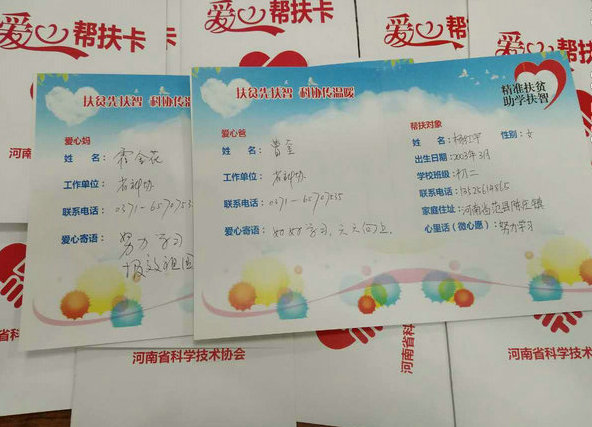 爱心帮扶卡
帮扶卡
扶贫先扶智 科协传温暖
爱心妈
姓 名：霍金花
工作单位：省科协
联系电话：0371-65707535
爱心寄语：努力学习
报效祖国
扶贫先扶智 科协传温暖
精准扶贫
助学扶智
爱心爸
姓 名：曹奎
工作单位：省科协
联系电话：0371-65707535
爱心寄语：好好学习，天天向上
帮扶对象
姓 名： 性别：女
出生日期：2003年3月
学校班级：初二
联系电话：13525614865
家庭住址：河南省范县陈庄镇
心里话（微心愿）：努力学习
河南省科学技术协会
河南省科
河南省科学技术